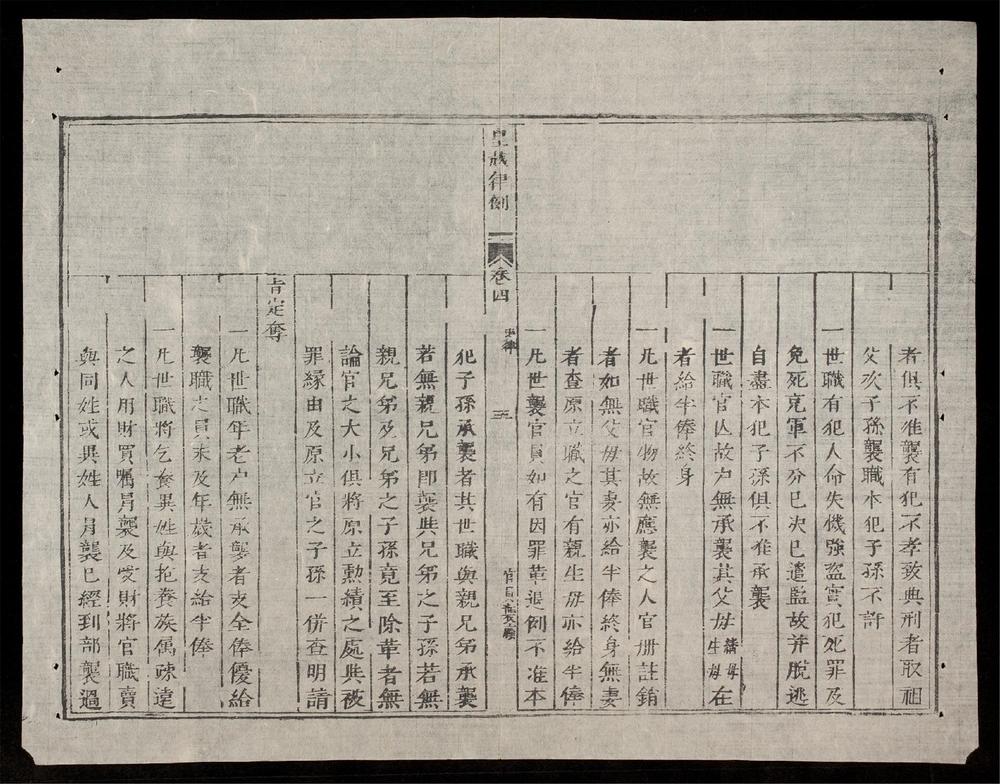 者俱不准襲有犯不孝致典刑者取祖
父次子孫襲職本犯子孫不許
一世職有犯人命失機強盜實犯死罪及
免死充軍不分已决已遣監故并脫逃
自盡本犯子孫俱不准承襲
一世職官亡故户無承襲其父母嫡母生母在
者給半俸終身
一凡世職官物故無應襲之人官册註銷
者如無父母其妻亦給半俸終身無妻
者查原立職之官有親生母亦給半俸
一凡世襲官員如有因罪革退例不准本
皇越律例
卷四
吏律
三
官員襲廕
犯子孫承襲者其世職與親兄弟承襲
若無親兄弟即襲與兄弟之子孫若無
親兄弟及兄弟之子孫竟至除革者無
論官之大小俱將原立勳績之處與被
罪緣由及原立官之子孫一併查明請
旨定奪
一凡世職年老户無承襲者支全俸優給
襲職之員未及年歲者支給半俸
一凡世職將乞養異姓與抱養族属疎遠
之人用財買囑冐襲及受財將官職賣
與同姓或異姓人冐襲已經到部襲過